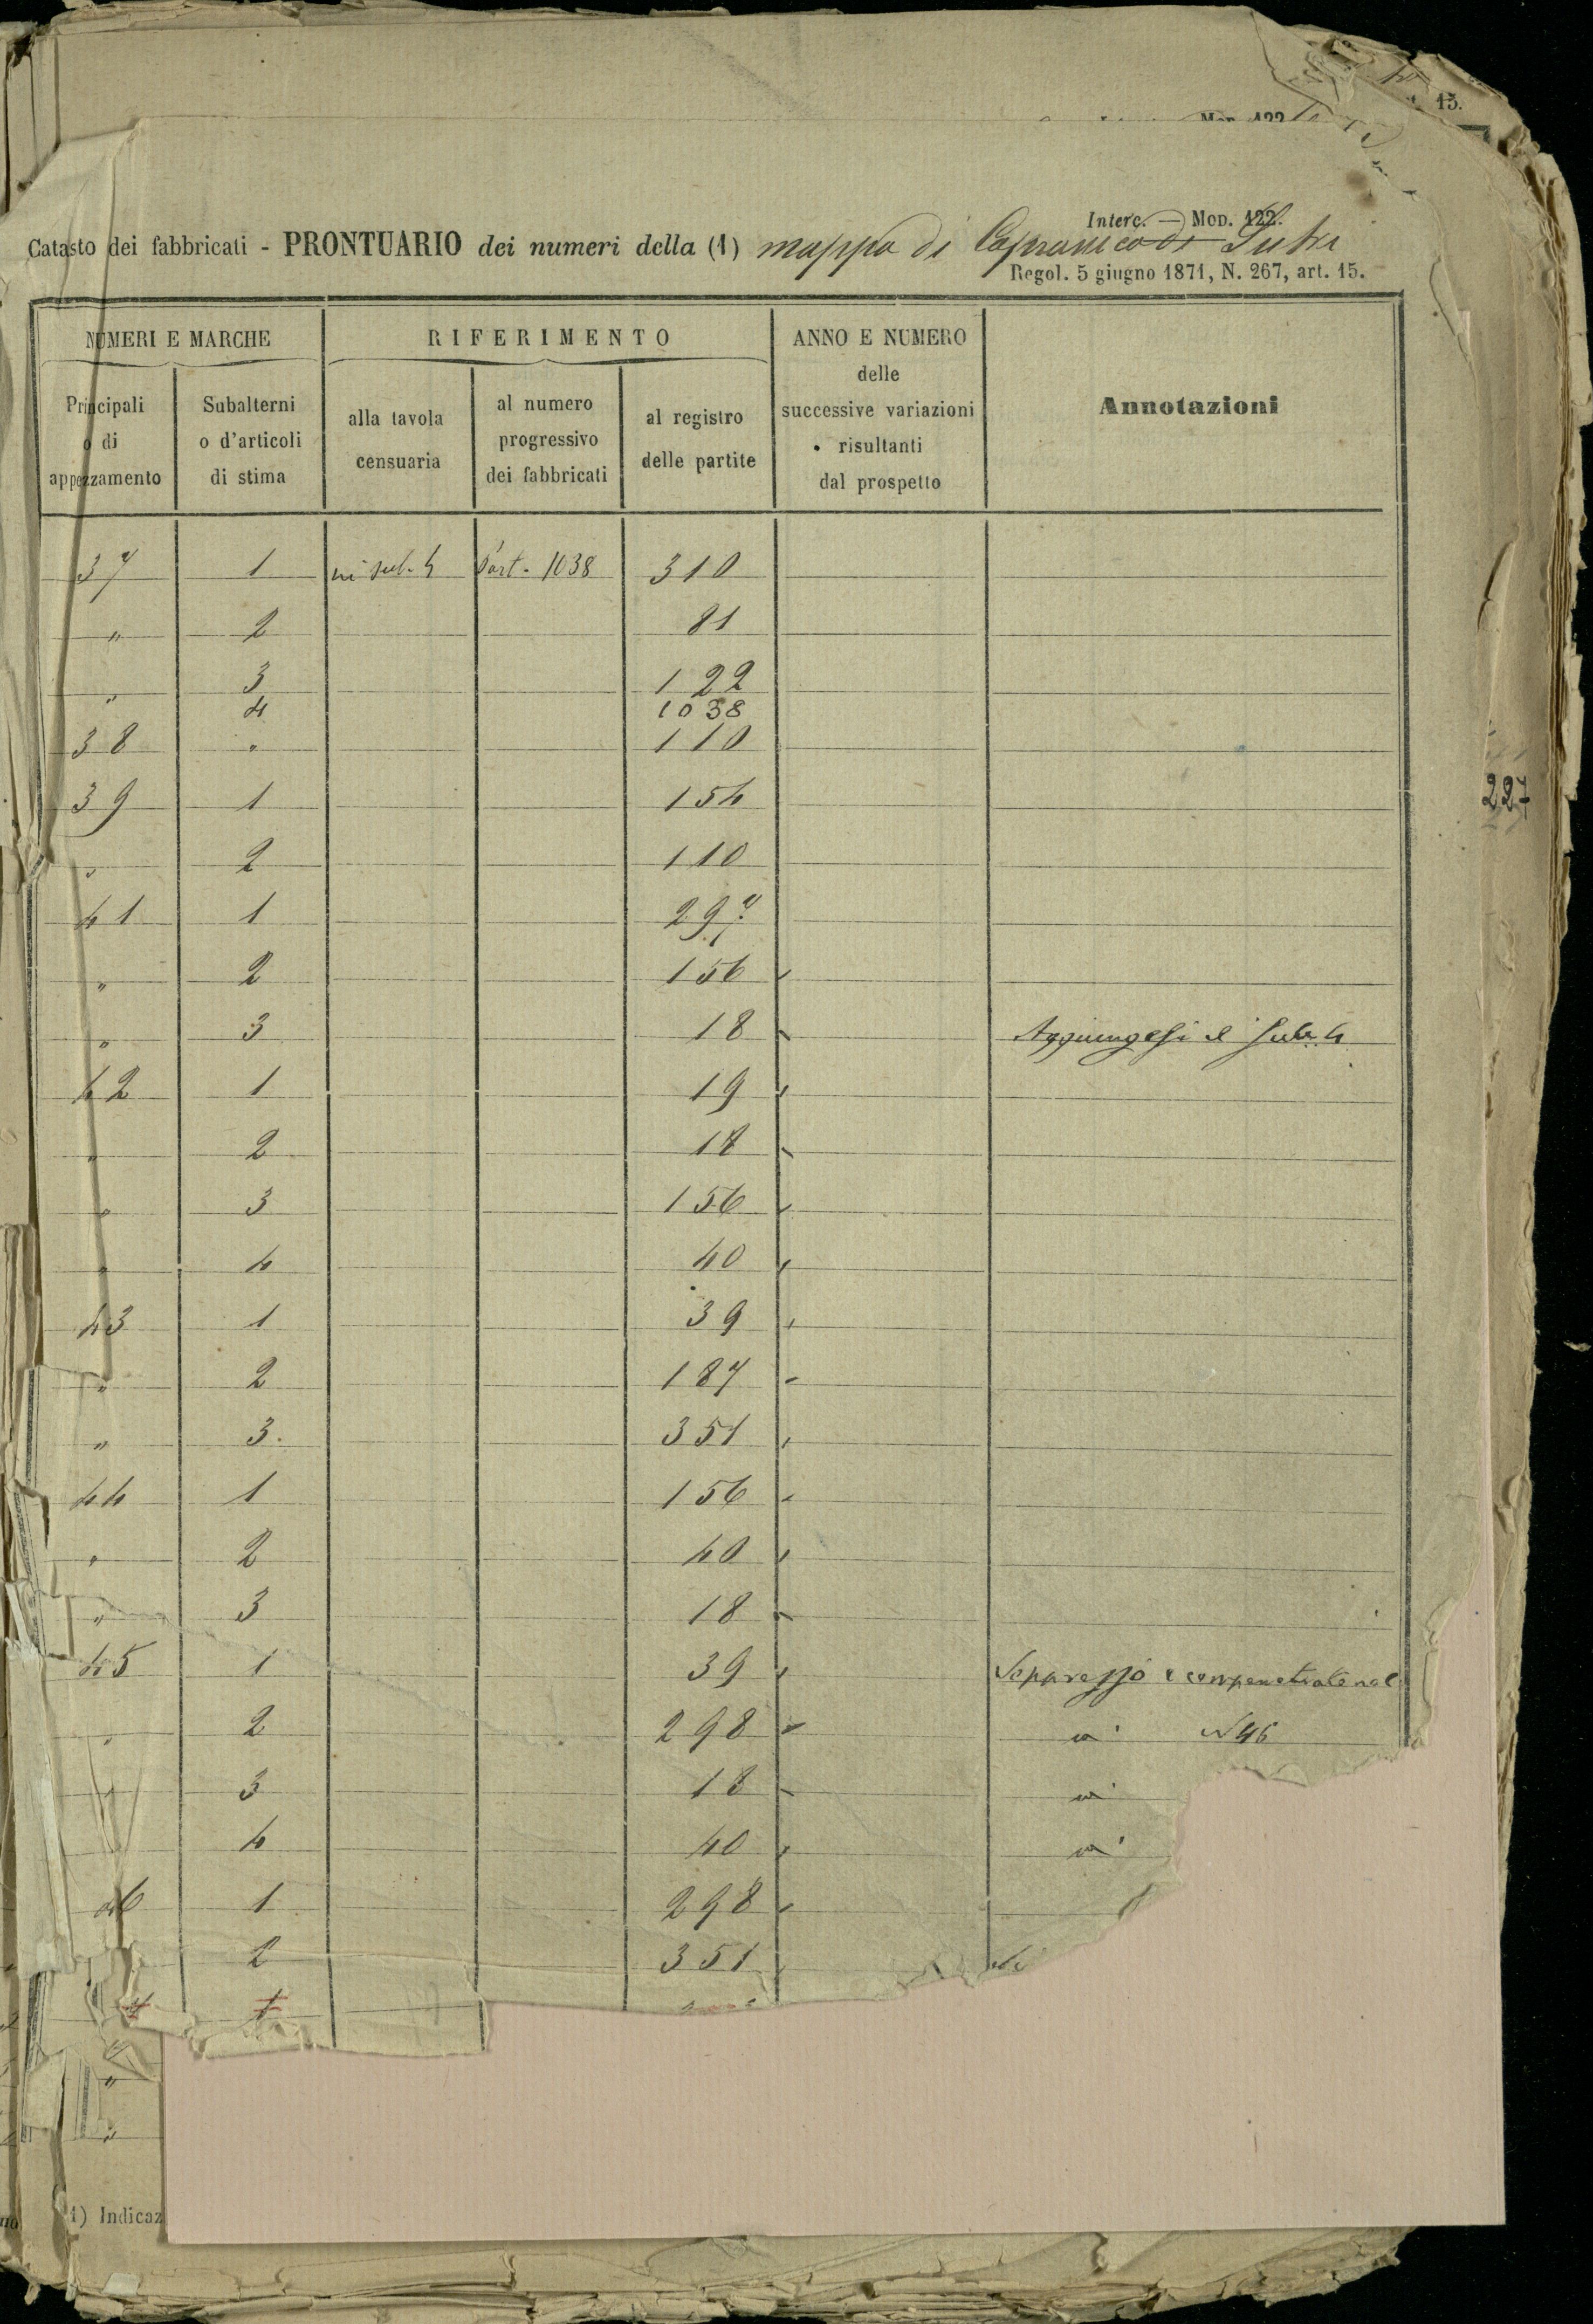 15.
Mod. 122
Interc. — Mod. 122.
Catasto dei fabbricati - PRONTUARIO dei numeri della (1) mappa di Capranica di Sutri
Regol. 5 giugno 1871, N. 267, art. 15.
NUMERI E MARCHE RIFERIMENTO ANNO E NUMERO delle successive variazioni risultanti dal prospetto Annotazioni
Principali o di appezzamento Subalterni o d'articoli di stima alla tavola censuaria al numero progressivo dei fabbricati al registro delle partite
37 1 sub. 4 Part. 1038 310
" 2 81
" 3 122
4 1038
38 " 110
39 1 154
" 2 110
227
41 1 297
" 2 156
" 3 18 Aggiungesi il Sub. 4
42 1 19
" 2 18
" 3 156
" 4 40
43 1 39
" 2 187
" 3. 351
44 1 156
" 2 40
" 3 18
45 1 39 Soppresso e compenetrato nel
" 2 298 N 46
" 3 18
4 40
46 1 298
2 351
1
"
"
1) Indicaz